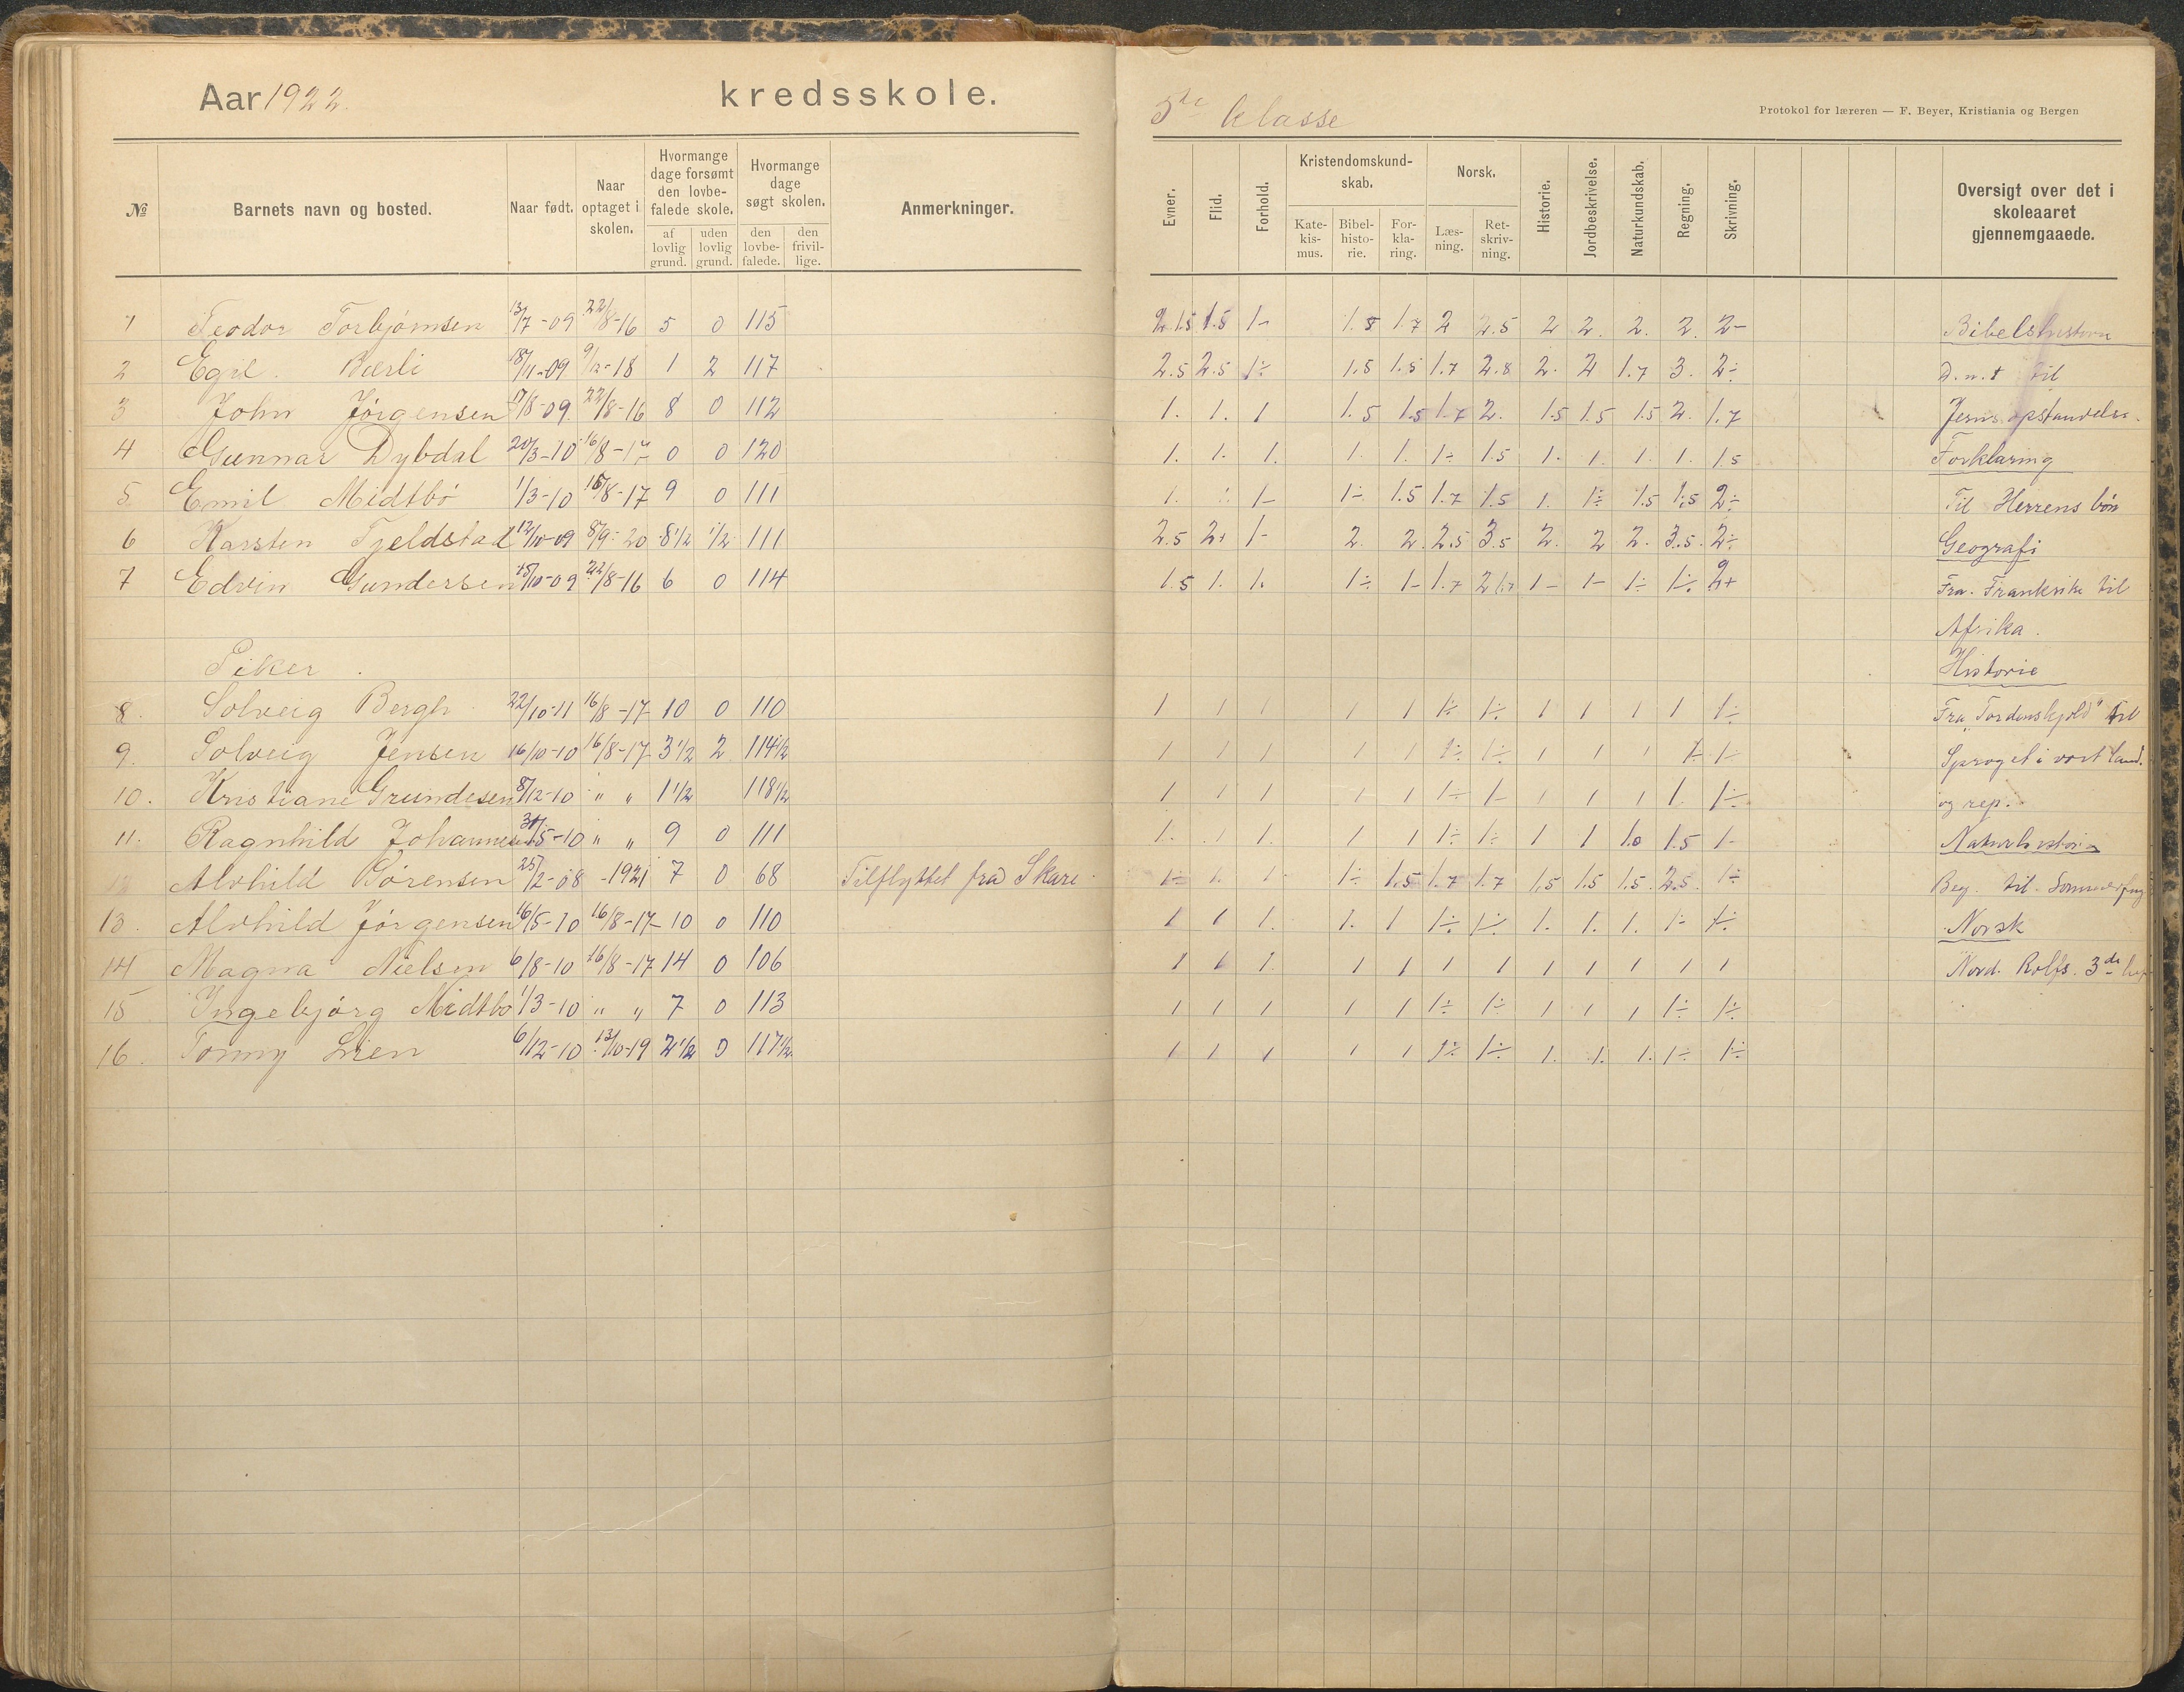 Aar 1922. kredsskole.
5te klasse
Protokol for læreren — F. Beyer, Kristiania og Bergen
№ Barnets navn og bosted. Naar født. Naar optaget i skolen. Hvormange dage forsømt den lovbefalede skole. af lovlig grund. uden lovlig grund. Hvormange dage søgt skolen. den lovbefalede. den frivillige. Anmerkninger. Evner. Flid. Forhold. Kristendomskundskab. Katekismus. Bibelhistorie. Forklaring. Norsk. Læsning. Retskrivning. Historie. Jordbeskrivelse. Naturkundskab. Regning. Skrivning. Oversigt over det i skoleaaret gjennemgaaede.
1 Teodor Torbjørnsen 13/7-09 22/8-16 5 0 115 1.5 1- 1.5 1.7 2 2.5 2 2. 2. 2. 2- Bibelshistorie
2 Egil Bærli 18/11-09 9/12-18 1 2 117 2.5 2.5 1÷ 1.5 1.5 1.7 2.8 2. 2 1.7 3. 2÷ D.n.t til
3 John Jørgensen 17/8-09. 22/8-16 8 0 112 1. 1. 1 1.5 1.5 1.7 2. 1.5 1.5 1.5 2. 1.7 Jesus opstandelse.
4 Gunnar Dybdal 20/3-10 16/8-17 0 0 120 1. 1. 1. 1. 1. 1÷ 1.5 1. 1. 1. 1. 1.5 Forklaring
5 Emil Midtbø 1/3-10 16/8-17 9 0 111 1. 1- 1÷ 1.5 1.7 1.5 1. 1÷ 1.5 1.5 2÷ Til Herrens bøn
6 Karsten Tjeldstad 12/10-09 8/9-20 8 1/2 1/2 111 2.5 2+ 1- 2. 2. 2.5 3.5 2. 2 2. 3.5. 2÷ Geografi
7 Edvin Gundersen 15/10-09 22/8-16 6 0 114 1.5 1. 1. 1÷ 1- 1.7 2 1- 1- 1÷ 1÷ 2+ Fra. Frankrike til
Afrika.
Piker. Historie
8. Solveig Bergh 22/10-11 16/8-17 10 0 110 1 1 1 1 1 1÷ 1÷ 1 1 1 1 1÷ Fra "Tordenskjold" til
9. Solveig Jensen 16/10-10 16/8-17 3 1/2 2 114 1/2 1 1 1 1 1 1÷ 1÷ 1 1 1 1- 1÷ Sproget i vort land.
10. Kristiane Grundesen 8/12-10 " " 1 1/2 118 1/2 1 1 1 1 1 1÷ 1- 1 1 1 1. 1÷ og rep.
11. Ragnhild Johannesen 31/5-10 " " 9 0 111 1. 1 1. 1 1 1÷ 1÷ 1 1 1.0 1.5 1- Naturhistorie
12 Alvhild Sørensen 25/2-08 -1921 7 0 68 Tilflyttet fra Skare. 1÷ 1. 1. 1÷ 1.5 1.7 1.7 1.5 1.5 1.5. 2.5. 1÷ Beg. til.
13. Alvhild Jørgensen 16/5-10 16/8-17 10 0 110 1 1 1. 1. 1 1÷ 1÷ 1. 1. 1. 1- 1÷ Norsk
14 Magna Nielsen 6/8-10 16/8-17 14 0 106 1 1 1. 1 1 1 1 1 1 1 1 1 Nord. Rolfs. 3de
15 Ingebjørg Midtbø 1/3-10 " " 7 0 113 1 1 1 1 1 1÷ 1÷ 1 1 1 1÷ 1÷
16. Tonny Lien 6/12-10 13/10-19 2 1/2 0 117 1/2 1 1 1 1 1 1÷ 1÷ 1. 1. 1. 1÷ 1÷